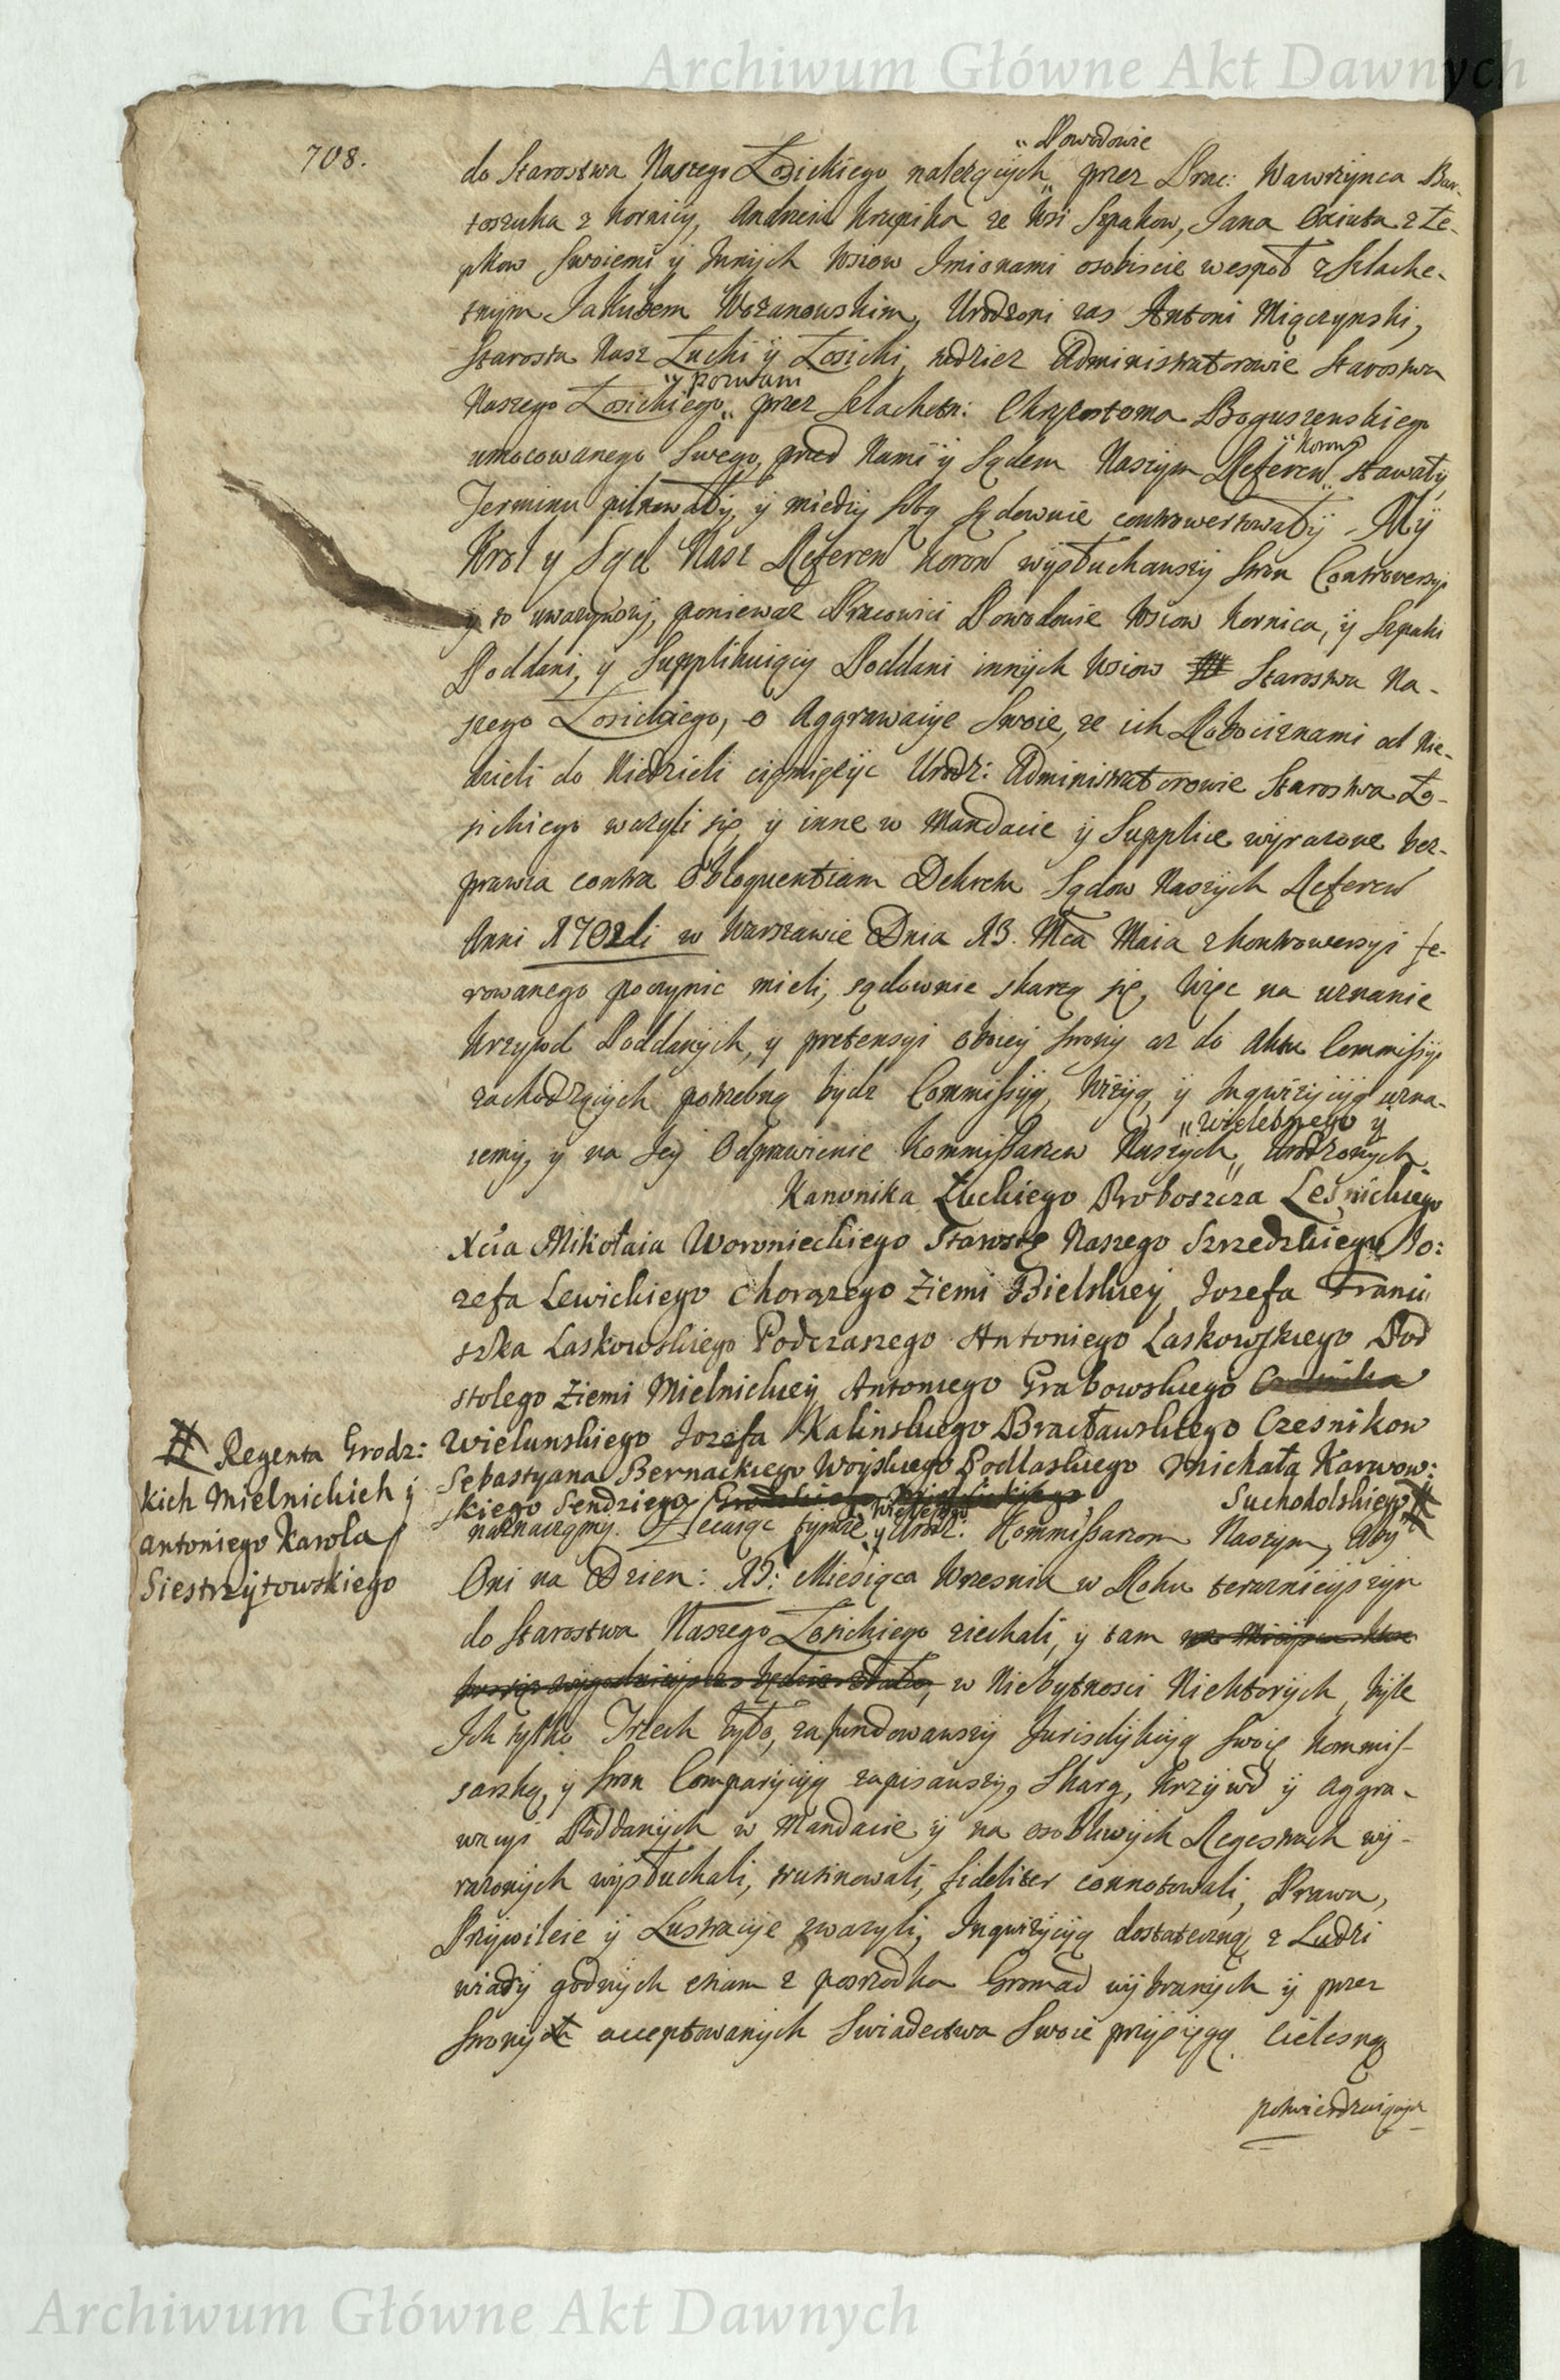 Archiwum Główne Akt Dawnych
708.
„Powodowie
do Starostwa Naszego Łosickiego należących „ przez Prac: Wawrzynca Bar-
toszuka z Kornicy, Andrzeia Krupika ze Wsi Szpakow, Jana Oxiuta z Łe-
pkow Swoiemi ÿ Innÿch Wsiow Imionami osobiscie wespoł z Szlache-
tnÿm Jakubem Wozanowskim, Urodzoni zas Antoni Miączynski,
Starosta Nasz Łucki ÿ Łosicki, tudziez Administratorowie Starostwa
„ Pozwani
Naszego Łosickiego „ przez Szlachetn: Chryzostoma Boguszewskiego
umocowanego Swego, przed Nami ÿ Sądem Naszym Referen „ stawały,
„ Koron
Terminu pilnowały, ÿ miedzy sobą sądownie controwertowały. Mÿ
Krol y Sąd Nasz Referen Koron wÿsłuchawszy Stron Controwersyi
y to uwazywszy, poniewaz Pracowici Powodowie Wsiow Kornica, ÿ Szpaki
Poddani, y Supplikuiący Poddani innÿch Wsiow Starostwa Na-
szego Łosickiego, o Aggrawacÿe Swoie, ze ich Robociznami od Nie-
dzieli do Niedzieli ciemięzÿc Urodz: Administratorowie Starostwa Ło-
sickiego wazyli się, ÿ inne w Mandacie ÿ Supplice wÿrazone bez-
prawia contra Obloquentiam Dekretu Sądow Naszÿch Referen
Anni 1702di w Warszawie Dnia 13. Mca Maia z kontrowersyi fe-
rowanego poczynic mieli, sądownie skarzą się, Więc na uznanie
Krzywd Poddanÿch, y pretensyi oboiey strony az do Aktu Commissyi
zachodzącÿch potrzebną bydz Commissÿą, Wizÿą, ÿ Inqwizycÿą uzna-
„ Wielebnego ÿ
iemÿ, ÿ na Jeÿ Odprawienie Kommissarzow Naszÿch „ Urodzonych
Kanonika Łuckiego Proboszcza Leśnickiego
Xcia Mikołaia Woronieckiego Starostę Naszego Szrzedzkiego Jo:
zefa Lewickiego Chorązego Ziemi Bielskiey, Jozefa Franci
szka Laskowskiego Podczaszego Antoniego Laskowskiego Pod
stolego Ziemi Mielnickiey Antoniego Grabowskiego Czesnika
Wielunskiego Jozefa Kalinskiego Bracławskiego Czesnikow
Sebastyana Bernackiego Woyskiego Podlaskiego Michała Karwow:
skiego Sendziego Grodzkiego Mielnickiego, Suchodolskiego #
# Regenta Grodz:
kich Mielnickich ÿ
Antoniego Karola
Siestrzÿtowskiego
naznaczÿmÿ. Zlecaiąc tymze „ ÿ Urodz: Kommissarzom Naszym, aby
Wielebnemu
Oni na Dzien: 15: Miesiąca Wrzesnia w Roku teraznieÿszÿm
do Starostwa Naszego Łosickiego ziechali, ÿ tam
w Niebytnosci Niektorych, bÿle
Ich tylko Trzech było, zafundowawszÿ Jurisdÿkcÿą Swoię Kommis-
sarską, ÿ Stron Comparÿcÿą zapisawszÿ, Skarg, Krzÿwd ÿ Aggra-
wacyi Poddanÿch w Mandacie ÿ na osobliwych Regestrach wÿ-
razonÿch wÿsłuchali, trutinowali, fideliter connotowali, Prawa,
Przÿwileie ÿ Lustracye zwazyli, Inqwizÿcÿą dostateczną z Ludzi
wiarÿ godnych etiam z posrzodka Gromad wÿbranÿch ÿ przez
Stronÿ acceptowanÿch Swiadectwa Swoie przÿsięgą Cielesną
potwierdzaiącÿch
Archiwum Główne Akt Dawnych